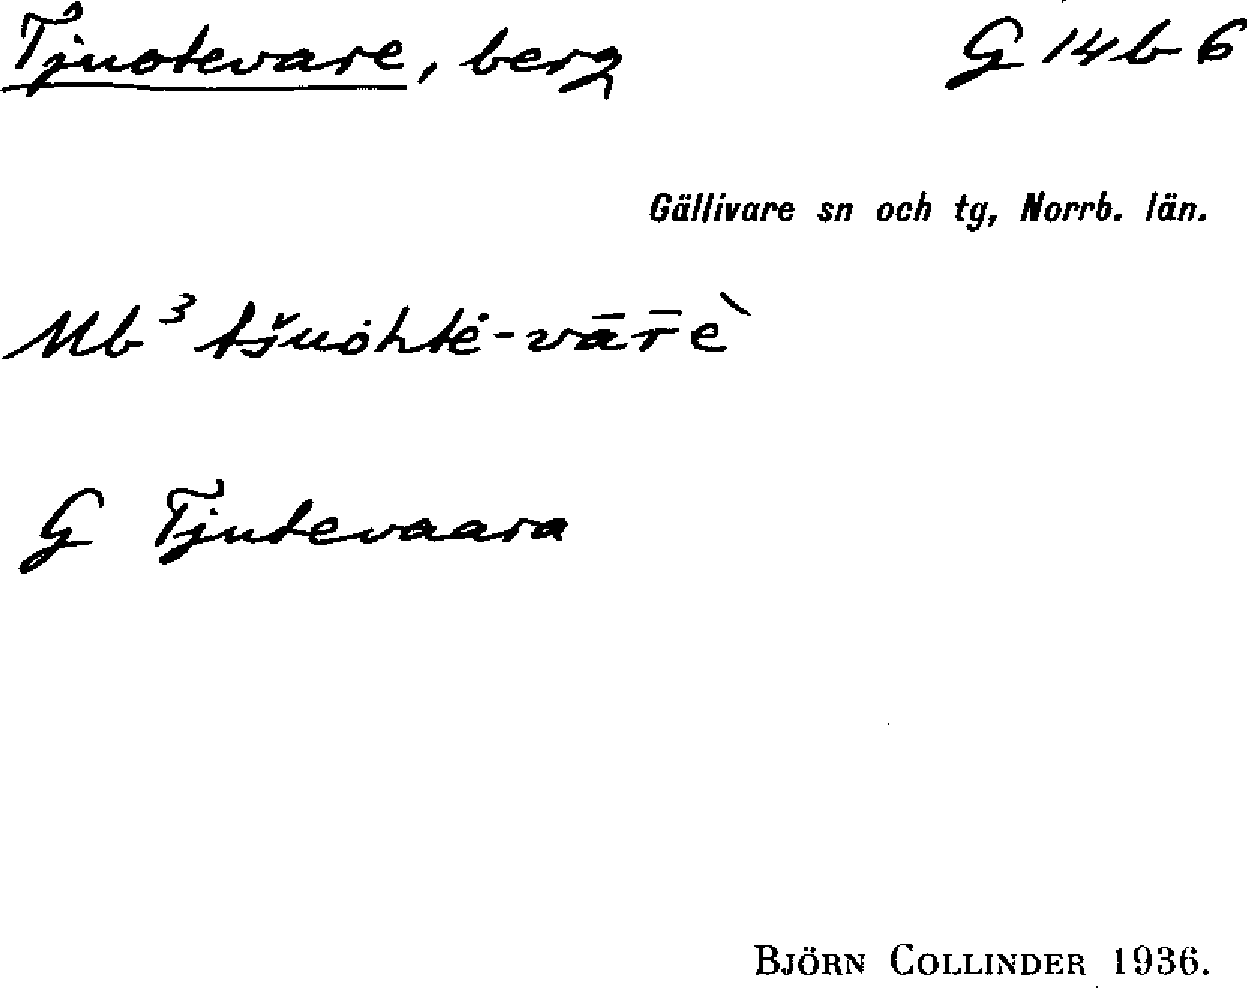 Tjuotevare, berg G 14 b 6
Gällivare sn och tg, Norrb. län.
Mb³ tšuȯhtė-vār̄è
G Tjutevaara
BJÖRN COLLINDER 1936.